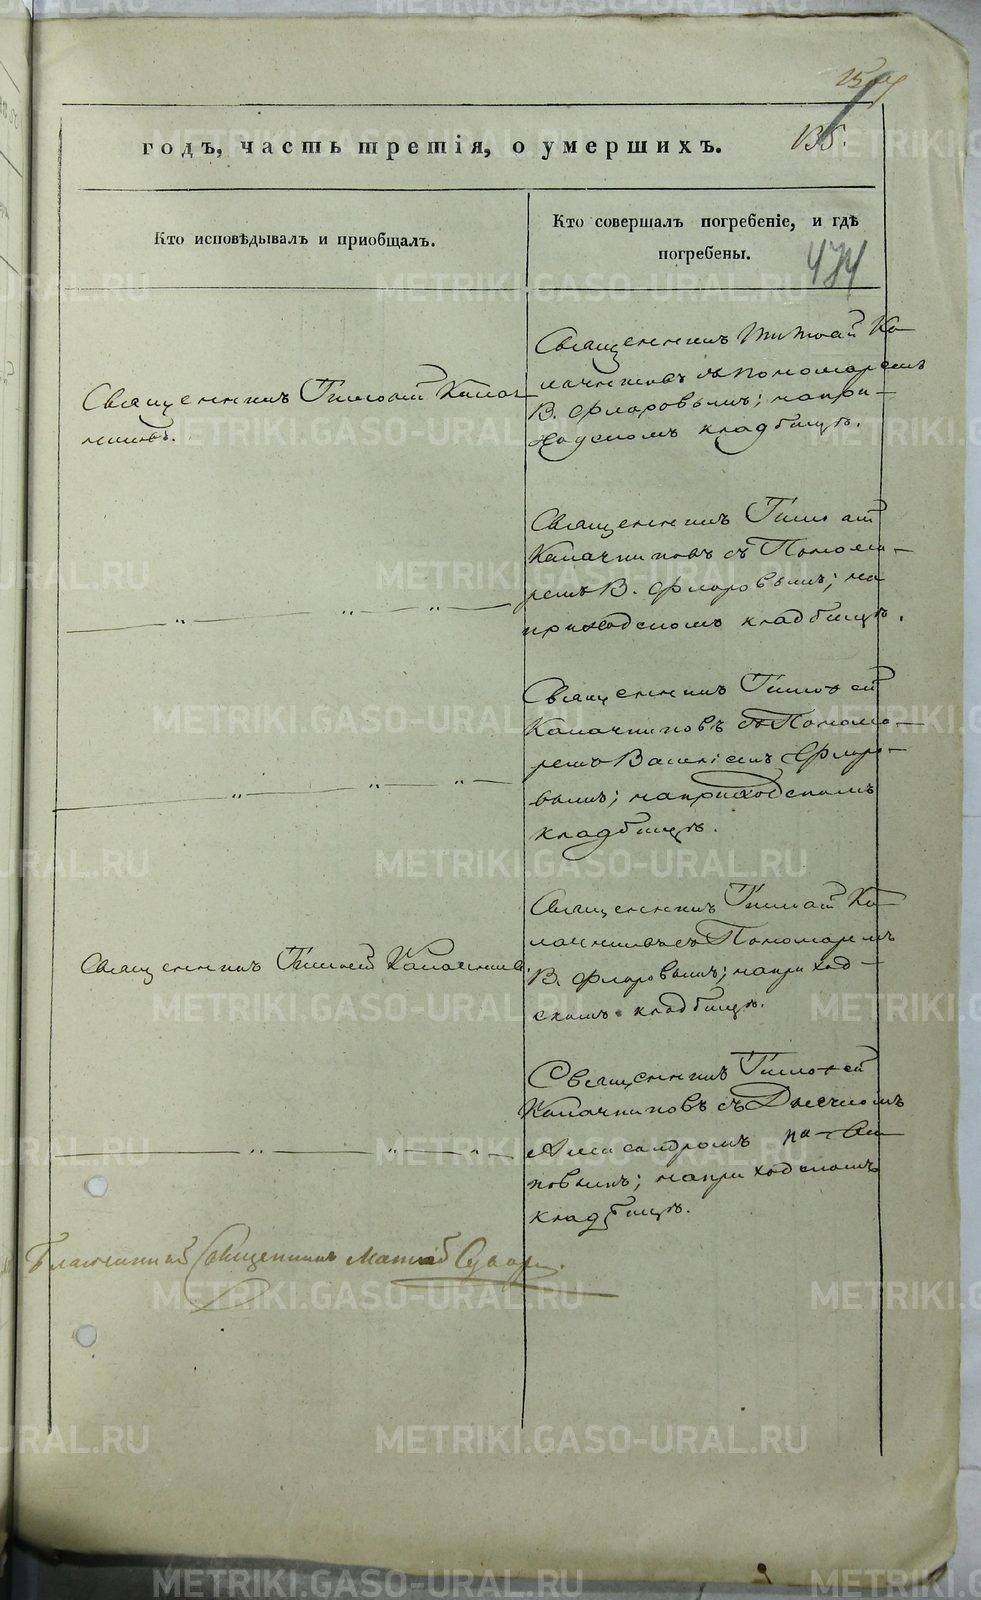 годъ, часть третія, о умершихъ.
138.
Кто исповѣдывалъ и приобщалъ.
Кто совершалъ погребеніе, и гдѣ
погребены.
474
Священникъ Тимофей Калач
никовъ.
Священникъ Тимофей Ка-
лачниковъ съ пономаремъ
В. Флоровымъ; на при-
ходскомъ кладбищѣ.
Священникъ Тимофей
Калачниковъ съ Понома-
ремъ В. Флоровымъ; на
приходскомъ кладбищѣ.
Священникъ Тимофей
Калачниковъ съ Понома-
ремъ Василіемъ Флоро-
вымъ; на приходскомъ
кладбищѣ.
Священникъ Тимофей Калачниковъ
Священникъ Тимофей Ка-
лачниковъ съ Пономаремъ
В. Флоровымъ; на приход-
скомъ кладбищѣ.
Священникъ Тимофей
Калачниковъ съ Дьячкомъ
Александромъ
на приходскомъ
кладбищѣ.
Благочинный Священникъ Матвей
METRIKI.GASO-URAL.RU